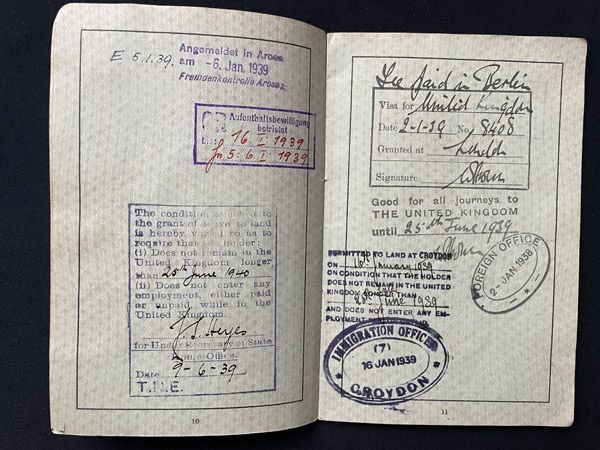 E 5.1.39.
Angemeldet in Arosa
am -6. Jan. 1939
Fremdenkontrolle Arosa
Aufenthaltsbewilligung
befristet
16. I. 1939
5. 6. I. 1939.
The condition attached to
the grant of leave to land
is hereby varied so as to
require that the holder:
(i) Does not remain in the
United Kingdom longer
than 25th June 1940
(ii) Does not enter any
employment, either paid
or unpaid, while in the
United Kingdom.
for Under Secretary of State
Home Office.
Date 9-6-39
T.N.E.
10
Fee paid in Berlin
Visa for United Kingdom
Date 2-1-39 No. 8408
Granted at
Signature
Good for all journeys to
THE UNITED KINGDOM
until 25th June 1939
FOREIGN OFFICE
2-JAN 1938
PERMITTED TO LAND AT CROYDON
ON 16th January 1939
ON CONDITION THAT THE HOLDER
DOES NOT REMAIN IN THE UNITED
KINGDOM LONGER THAN
25th June 1939
AND DOES NOT ENTER ANY EM-
PLOYMENT
IMMIGRATION OFFICER
(7)
16 JAN 1939
CROYDON
11